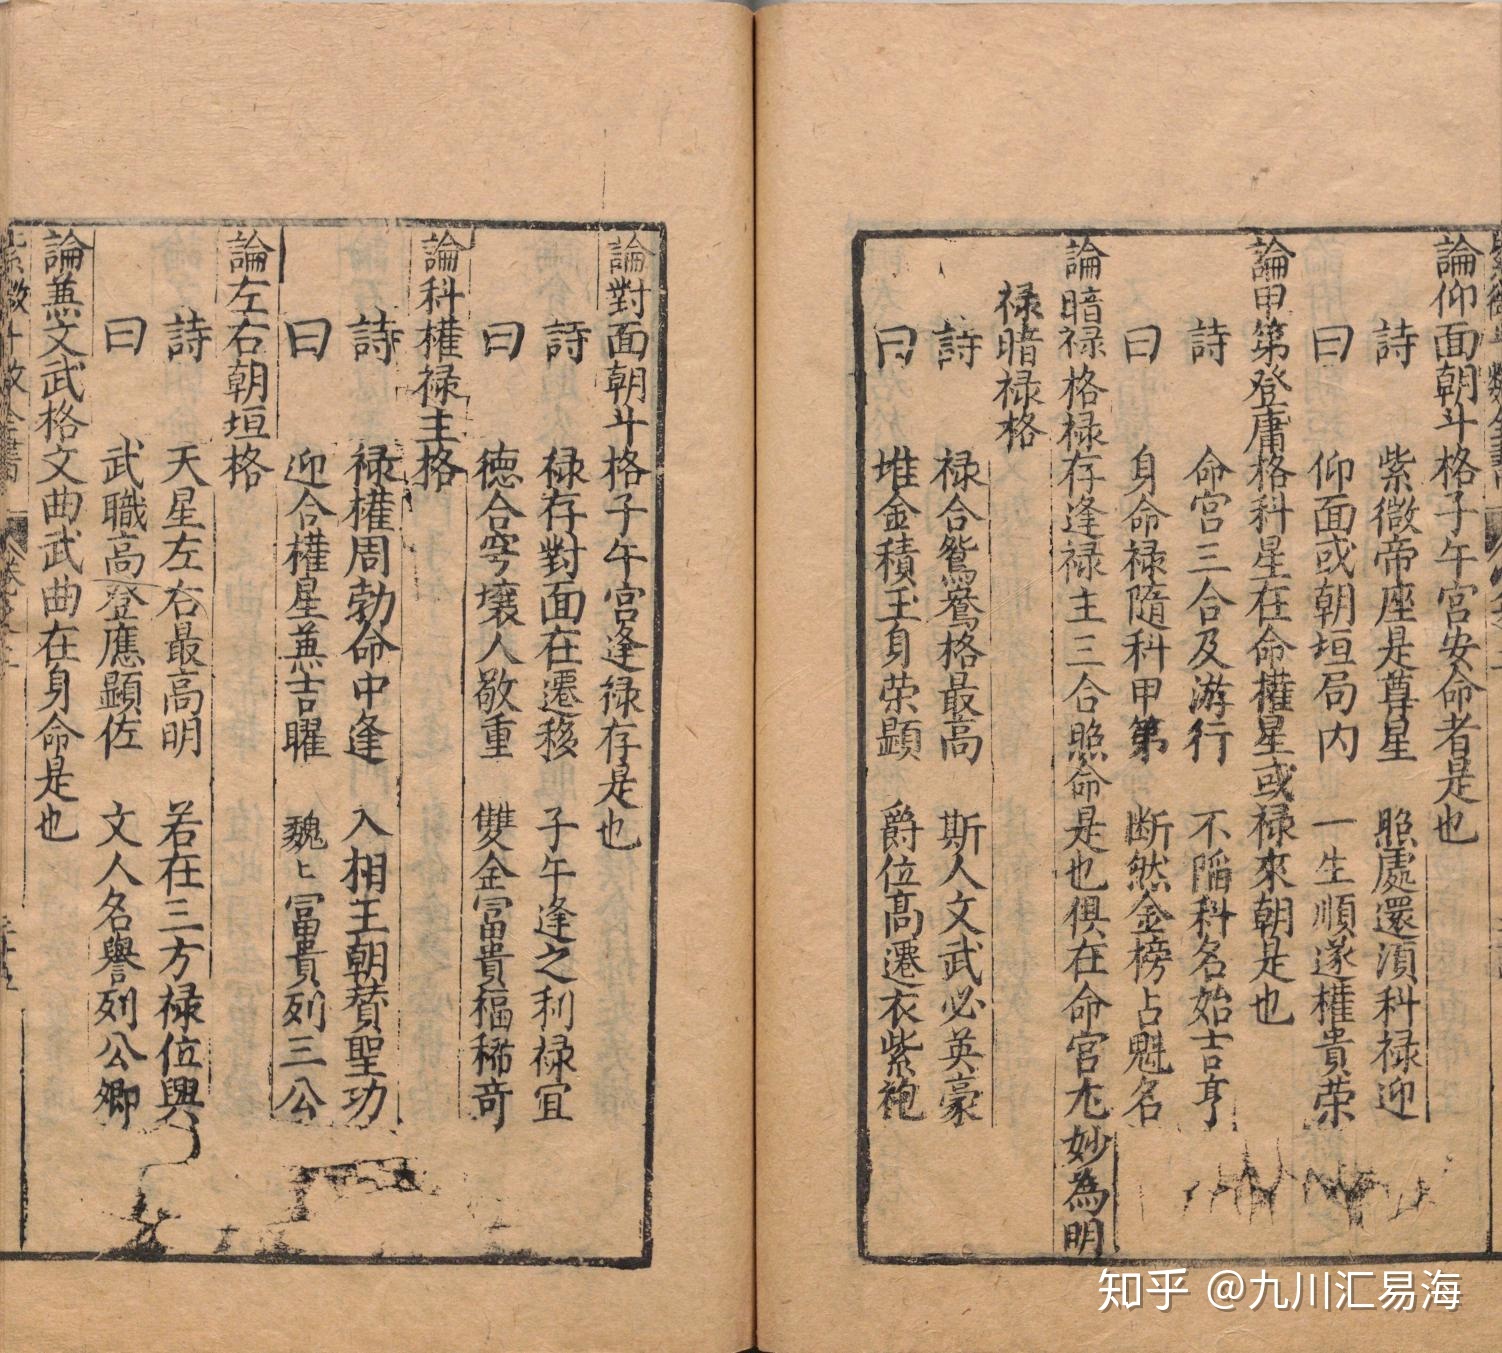 論仰面朝斗格子午宮安命者是也
詩 紫微帝座是尊星 照處還湏科禄迎
曰 仰面或朝垣局内 一生順遂權貴荣
論甲第登庸格科星在命權星或禄來朝是也
詩 命宮三合及游行 不陷科名始吉亨
曰 身命禄隨科甲第 断然金榜占魁名
論暗禄格禄存逢禄主三合照命是也俱在命宮尤妙為明
禄暗禄格
詩 禄合鴛鴦格最高 斯人文武必英豪
曰 堆金積玉身荣顕 爵位高遷衣紫袍
論對面朝斗格子午宮逢禄存是也
詩 禄存對面在遷移 子午逢之利禄宜
曰 徳合穹壤人敬重 雙金富貴福稀奇
論科權禄主格
詩 禄權周勃命中逢 入相王朝賛聖功
曰 迎合權星兼吉曜 魏〻富貴列三公
論左右朝垣格
詩 天星左右最高明 若在三方禄位興
曰 武職高登應顕佐 文人名譽列公卿
論兼文武格文曲武曲在身命是也
知乎 @九川汇易海